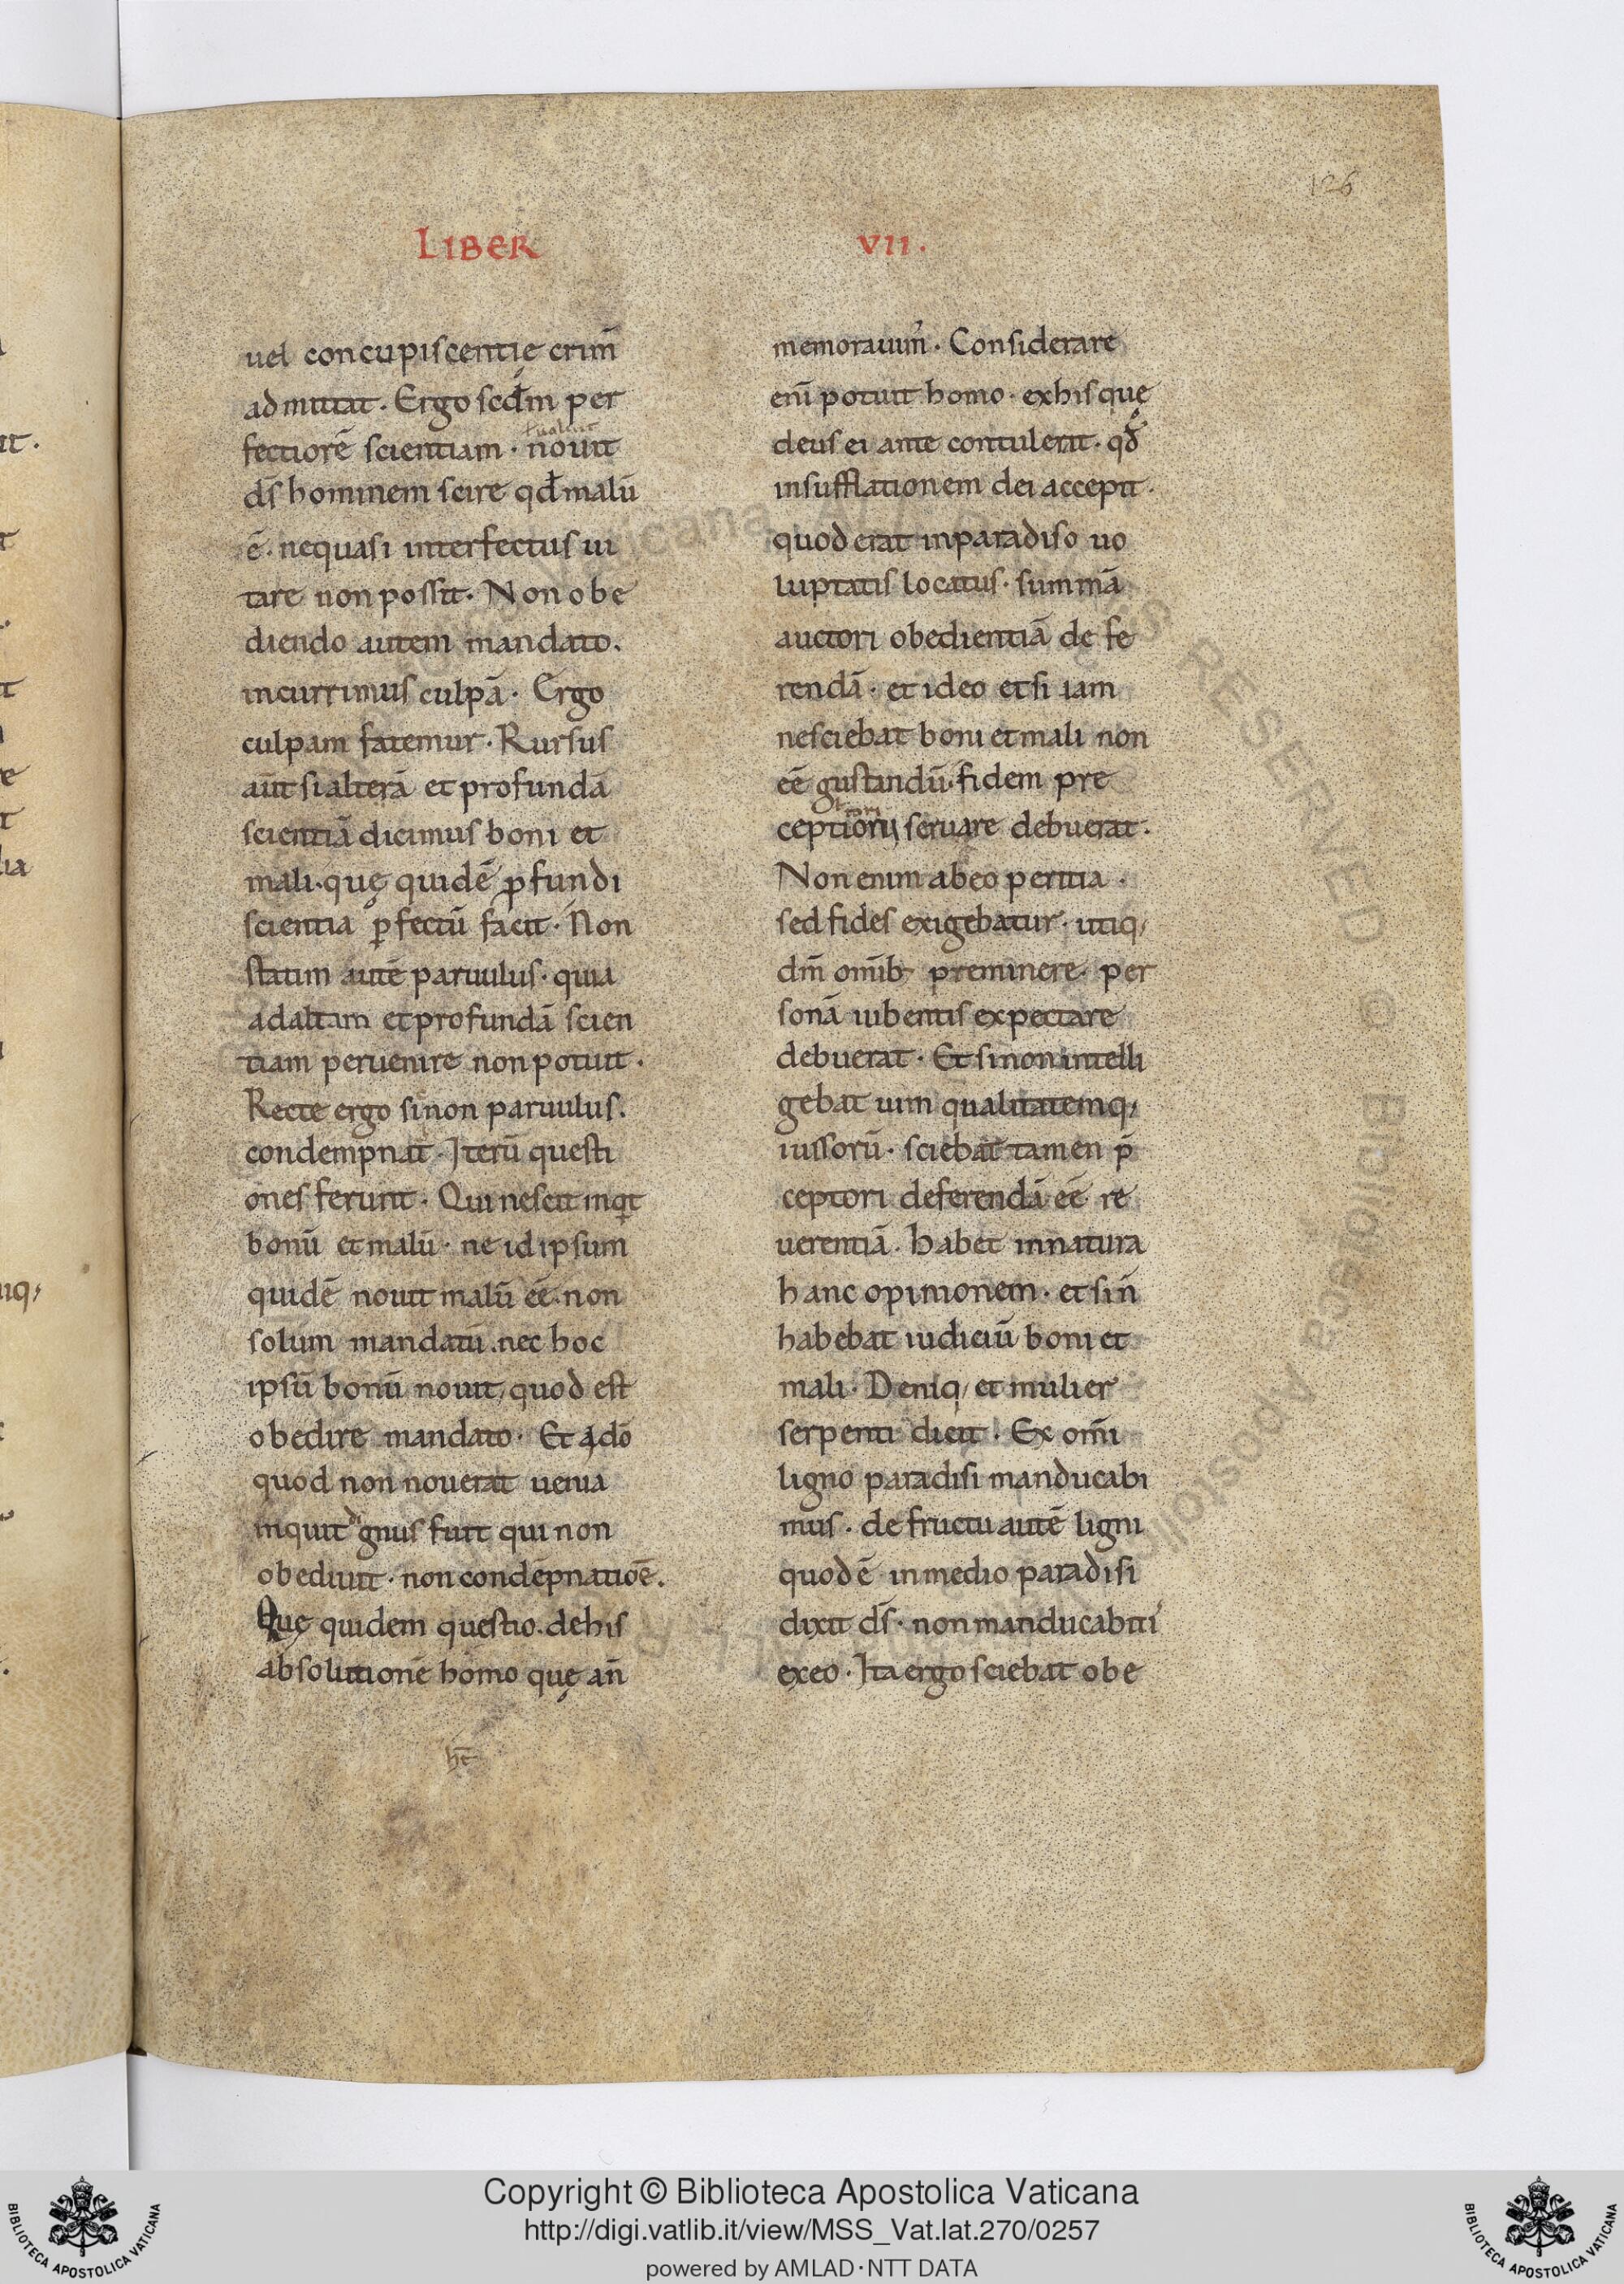 126
LIBER VII.
uel concupiscentię crim̄
admittat. Ergo scd̄m per
fectiorē scientiam. nouit
ds̄ hominem scire qd̄ malū
ē. nequasi interfectus ui
tare non possit. Non obe
diendo autem mandato.
incurrimus culpā. Ergo
culpam fatemur. Rursus
aūt si alterā et profundā
scientiā dicimus boni et
mali. quę quidē ꝓfundi
scientia ꝑfectū facit. Non
statim autē paruulus. quia
ad altam et profundā scien
tiam peruenire non potuit.
Recte ergo si non paruulus.
condempnat̄. Iterū questi
ones ferunt. Qui nescit inqt
bonū et malū. ne id ipsum
quidē nouit malū eē. non
solum mandatū. nec hoc
ipsū bonū nouit, quod est
obedire mandato. Et
quod non nouerat uenia
inquit dignus fuit qui non
obediuit. non condēpnatiōe.
Quę quidem questio. de his
absolutionē homo quę an̄
ht̄
memorauim᷒. Considerare
eni̅ potuit homo. ex his quę
deus ei ante contulerit. qđ
insufflationem dei accepit.
quod erat in paradiso uo
luptatis locatus. summā
auctori obedientiā defe
rendā. et ideo etsi iam
nesciebat boni et mali non
eē gustandū. fidem pre
ceptiorū seruare debuerat.
Non enim ab eo peritia.
sed fides exigebatur. utiq;
dm̄ omib; preminere. per
sonā iubentis expectare
debuerat. Et si non intelli
gebat uim qualitatemq;
iussorū. sciebat tamen p̄
ceptori deferendā eē re
uerentiā. habet in natura
hanc opinionem. et si n̄
habebat iudiciū boni et
mali. Deniq; et mulier
serpenti dicit. Ex om̄i
ligno paradisi manducabi
mus. de fructu autē ligni
quod ē in medio paradisi
dixit ds̄. non manducabiti᷒
ex eo. Ita ergo sciebat obe
Copyright © Biblioteca Apostolica Vaticana
http://digi.vatlib.it/view/MSS_Vat.lat.270/0257
powered by AMLAD·NTT DATA
BIBLIOTECA APOSTOLICA VATICANA
BIBLIOTECA APOSTOLICA VATICANA